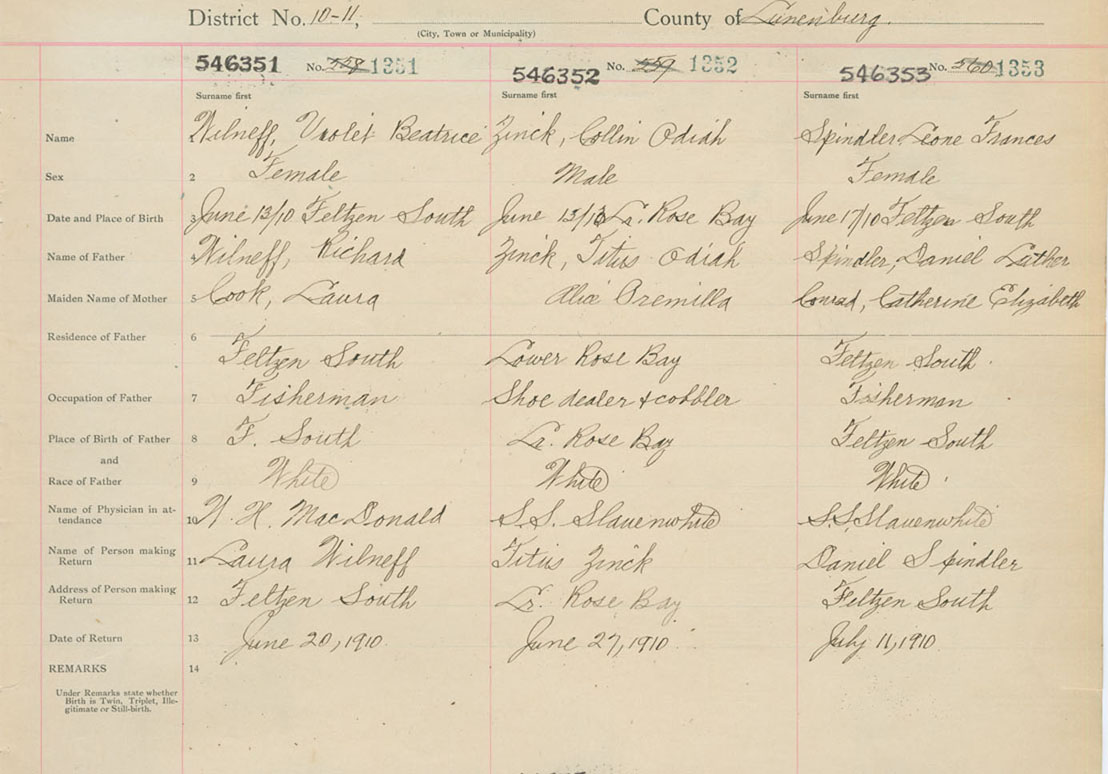 District No. 10-11, County of Lunenburg.
(City, Town or Municipality)
546351 No. 558 1351 546352 No. 559 1352 546353 No. 560 1353
Surname first Surname first Surname first
Name 1 Wilneff, Violet Beatrice Zinck, Collin Odiah Spindler, Leone Frances
Sex 2 Female Male Female
Date and Place of Birth 3 June 13/10 Feltzen South June Lr. Rose Bay June 17/10 Feltzen South
Name of Father 4 Wilneff, Richard Zinck, Titus Odiah Spindler, Daniel Luther
Maiden Name of Mother 5 Cook, Laura Alice Oremilla Conrad, Catherine Elizabeth
Residence of Father 6
Feltzen South Lower Rose Bay Feltzen South
Occupation of Father 7 Fisherman Shoe dealer & cobbler Fisherman
Place of Birth of Father 8 F. South Lr. Rose Bay Feltzen South
and
Race of Father 9 White White White
Name of Physician in at-
tendance 10 W. H. MacDonald S.S. Slauenwhite S.S. Slauenwhite
Name of Person making
Return 11 Laura Wilneff Titus Zinck Daniel Spindler
Address of Person making
Return 12 Feltzen South Lr. Rose Bay Feltzen South
Date of Return 13 June 20, 1910. June 27, 1910. July 11, 1910.
REMARKS 14
Under Remarks state whether
Birth is Twin, Triplet, Ille-
gitimate or Still-birth.